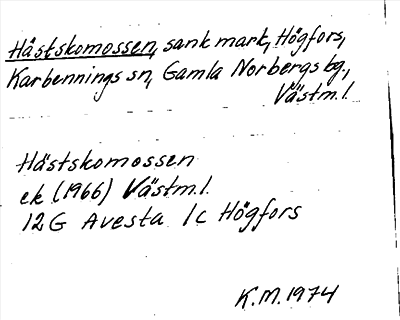 Hästskomossen, sank mark, Högfors,
Karbennings sn, Gamla Norbergs bg.,
Västm.l.
Hästskomossen
ek (1966) Västm.l.
12G Avesta 1c Högfors
K.M. 1974